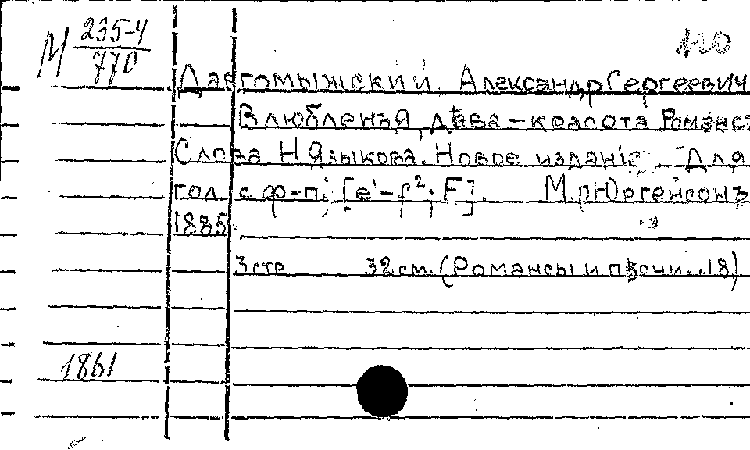 М 235-4
770
Даргомыжский, Александр Сергеевич
Влюбленъя, дѣва-красота Романсъ
Слова Н Языкова. Новое изданіе. Для
гол. с ф-п. [e'-f²; F]. М. П Юргенсонъ
1885.
3 стр 32 см. (Романсы и пѣсни... 18)
1861